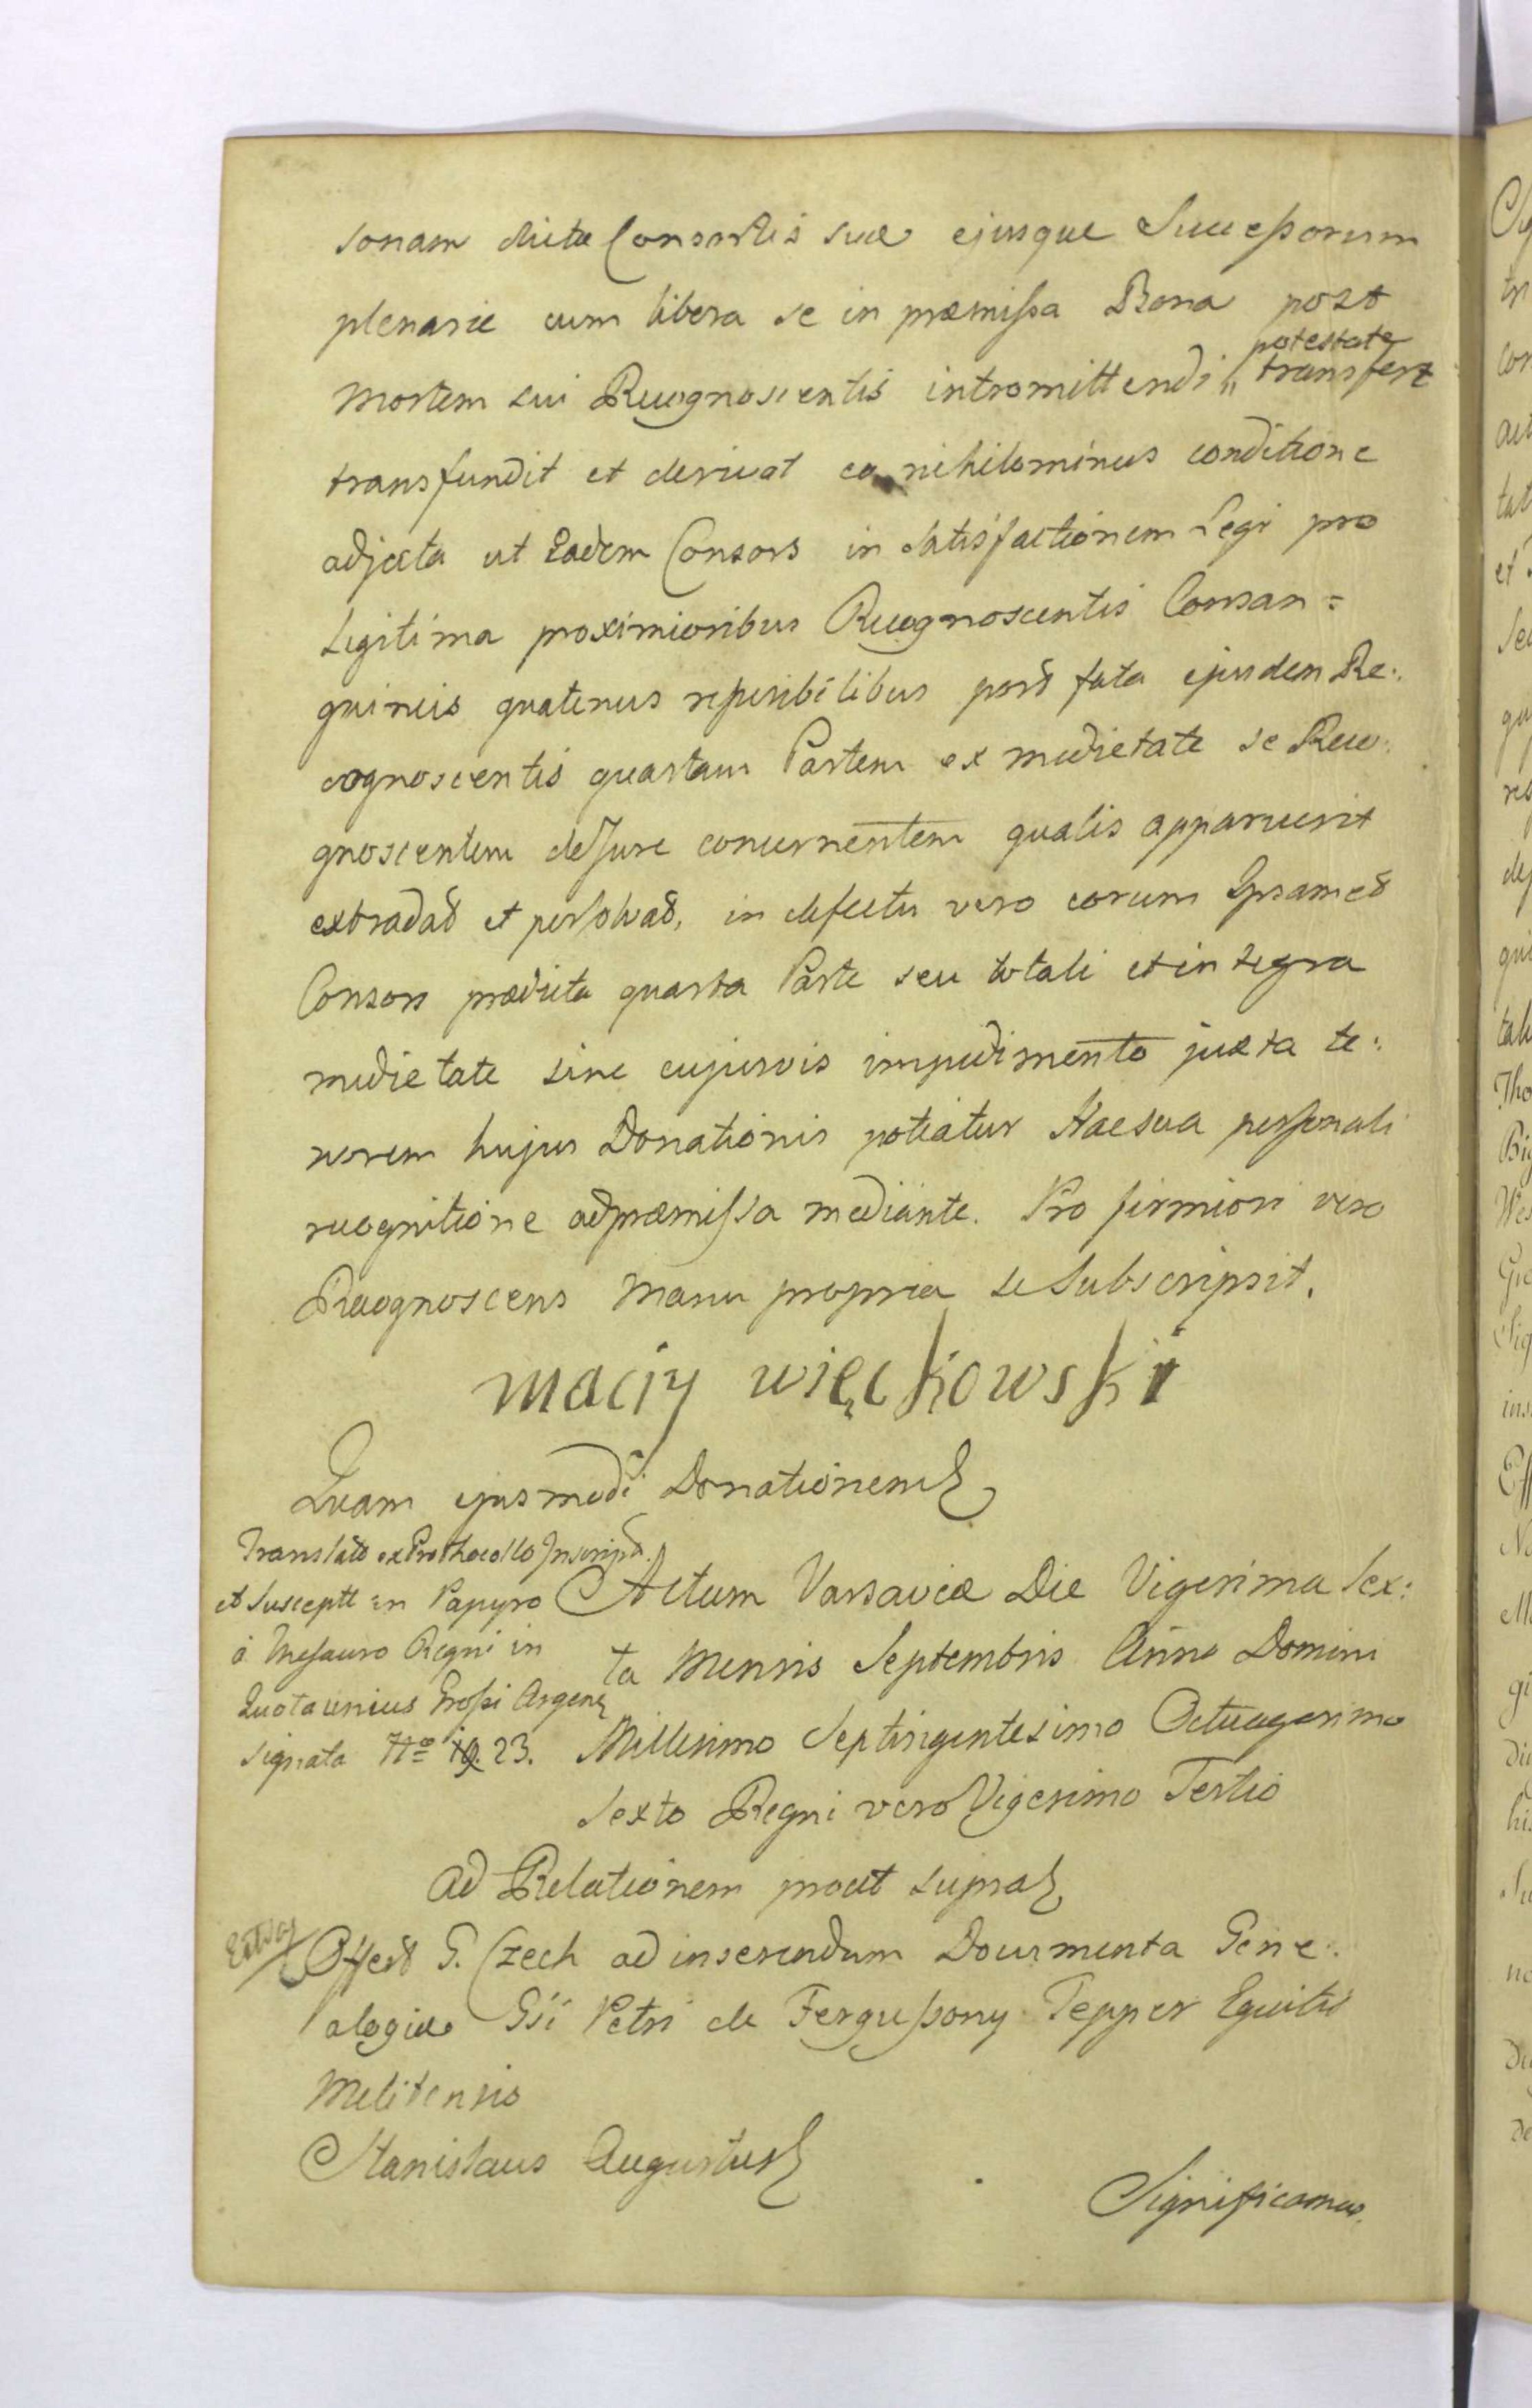 sonam dictae Consortis suae ejusque Successorum
plenarie cum libera se in praemissa Bona post
potestate
mortem sui Recognoscentis intromittendi „ transfert
transfundit et derivat ea nihilominus conditione
adjecta ut Eadem Consors in satisfactionem Legi pro
Legitima proximioribus Recognoscentis Consan=
guineis quatenus reperibilibus post fata ejusdem Re:
cognoscentis quartam Partem ex medietate se Reco:
gnoscentem de Jure concernentem qualis apparuerit
extradat et persolvat, in defectu vero eorum Ipsamet
Consors praedicta quarta Parte seu totali et integra
medietate sine cujusvis impedimento juxta te:
norem hujus Donationis potiatur Hac sua personali
recognitione ad praemissa mediante. Pro firmiori vero
Recognoscens manu propria se Subscripsit.
maciy więckowski
Quam ejusmodi Donationem
Translato ex Prothocollo Inscript.
et Suscept in Papyro
a Thesauro Regni in
Quota unius Grossi Argen
signata No 23.
Actum Varsaviae Die Vigesima Sex:
ta Mensis Septembris Anno Domini
Millesimo Septingentesimo Octuagesimo
Sexto Regni vero Vigesimo Tertio
Ad Relationem prout supra
Offert G. Czech ad inserendum Documenta Gene:
alogiae Gsi Petri de Fergussony Tepper Equitis
Melitensis
Stanislaus Augustus
Significamus.